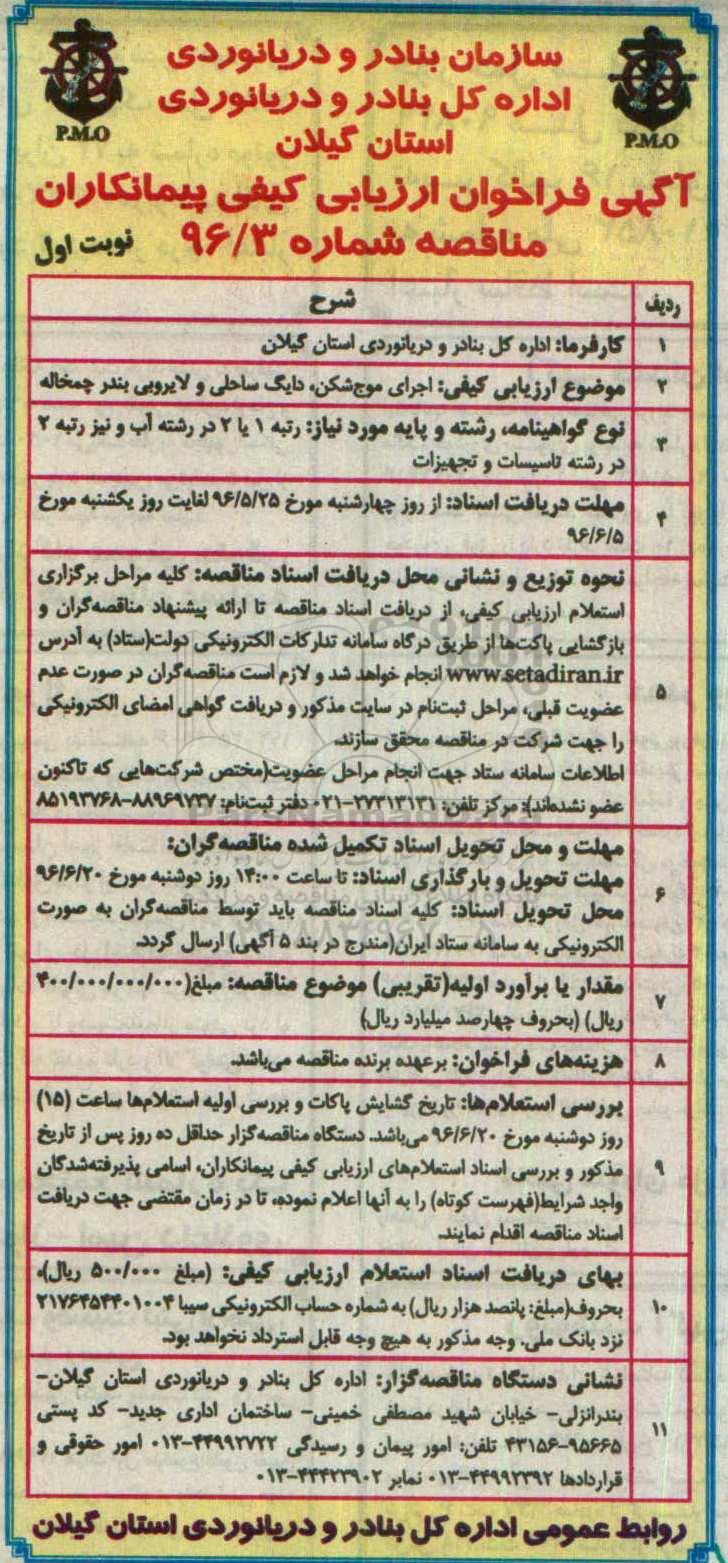 سازمان بنادر و دریانوردی
اداره کل بنادر و دریانوردی
استان گیلان
P.M.O
P.M.O
آگهی فراخوان ارزیابی کیفی پیمانکاران
مناقصه شماره ۹۶/۳
نوبت اول
ردیف
شرح
۱
کارفرما: اداره کل بنادر و دریانوردی استان گیلان
۲
موضوع ارزیابی کیفی: اجرای موج‌شکن، دایگ ساحلی و لایروبی بندر چمخاله
۳
نوع گواهینامه، رشته و پایه مورد نیاز: رتبه ۱ یا ۲ در رشته آب و نیز رتبه ۲
در رشته تاسیسات و تجهیزات
۴
مهلت دریافت اسناد: از روز چهارشنبه مورخ ۹۶/۵/۲۵ لغایت روز یکشنبه مورخ
۹۶/۶/۵
۵
نحوه توزیع و نشانی محل دریافت اسناد مناقصه: کلیه مراحل برگزاری
استعلام ارزیابی کیفی، از دریافت اسناد مناقصه تا ارائه پیشنهاد مناقصه‌گران و
بازگشایی پاکت‌ها از طریق درگاه سامانه تدارکات الکترونیکی دولت(ستاد) به آدرس
www.setadiran.ir انجام خواهد شد و لازم است مناقصه‌گران در صورت عدم
عضویت قبلی، مراحل ثبت‌نام در سایت مذکور و دریافت گواهی امضای الکترونیکی
را جهت شرکت در مناقصه محقق سازند.
اطلاعات سامانه ستاد جهت انجام مراحل عضویت(مختص شرکت‌هایی که تاکنون
عضو نشده‌اند): مرکز تلفن: ۲۷۳۱۳۱۳۱-۰۲۱ دفتر ثبت‌نام: ۸۸۹۶۹۷۳۷-۸۵۱۹۳۷۶۸
ParsNamadData
۶
مهلت و محل تحویل اسناد تکمیل شده مناقصه‌گران:
مهلت تحویل و بارگذاری اسناد: تا ساعت ۱۴:۰۰ روز دوشنبه مورخ ۹۶/۶/۲۰
محل تحویل اسناد: کلیه اسناد مناقصه باید توسط مناقصه‌گران به صورت
الکترونیکی به سامانه ستاد ایران(مندرج در بند ۵ آگهی) ارسال گردد.
۷
مقدار یا برآورد اولیه(تقریبی) موضوع مناقصه: مبلغ(۴۰۰/۰۰۰/۰۰۰/۰۰۰
ریال) (بحروف چهارصد میلیارد ریال)
۸
هزینه‌های فراخوان: برعهده برنده مناقصه می‌باشد.
۹
بررسی استعلام‌ها: تاریخ گشایش پاکات و بررسی اولیه استعلام‌ها ساعت (۱۵)
روز دوشنبه مورخ ۹۶/۶/۲۰ می‌باشد. دستگاه مناقصه‌گزار حداقل ده روز پس از تاریخ
مذکور و بررسی اسناد استعلام‌های ارزیابی کیفی پیمانکاران، اسامی پذیرفته‌شدگان
واجد شرایط(فهرست کوتاه) را به آنها اعلام نموده، تا در زمان مقتضی جهت دریافت
اسناد مناقصه اقدام نمایند.
۱۰
بهای دریافت اسناد استعلام ارزیابی کیفی: (مبلغ ۵۰۰/۰۰۰ ریال)،
بحروف(مبلغ: پانصد هزار ریال) به شماره حساب الکترونیکی سیبا ۲۱۷۶۴۵۴۴۰۱۰۰۴
نزد بانک ملی. وجه مذکور به هیچ وجه قابل استرداد نخواهد بود.
۱۱
نشانی دستگاه مناقصه‌گزار: اداره کل بنادر و دریانوردی استان گیلان-
بندرانزلی- خیابان شهید مصطفی خمینی- ساختمان اداری جدید- کد پستی
۴۳۱۵۶-۹۵۶۶۵ تلفن: امور پیمان و رسیدگی ۴۴۹۹۲۷۲۲-۰۱۳ امور حقوقی و
قراردادها ۴۴۹۹۲۳۹۲-۰۱۳ نمابر ۴۴۴۲۳۹۰۲-۰۱۳
روابط عمومی اداره کل بنادر و دریانوردی استان گیلان